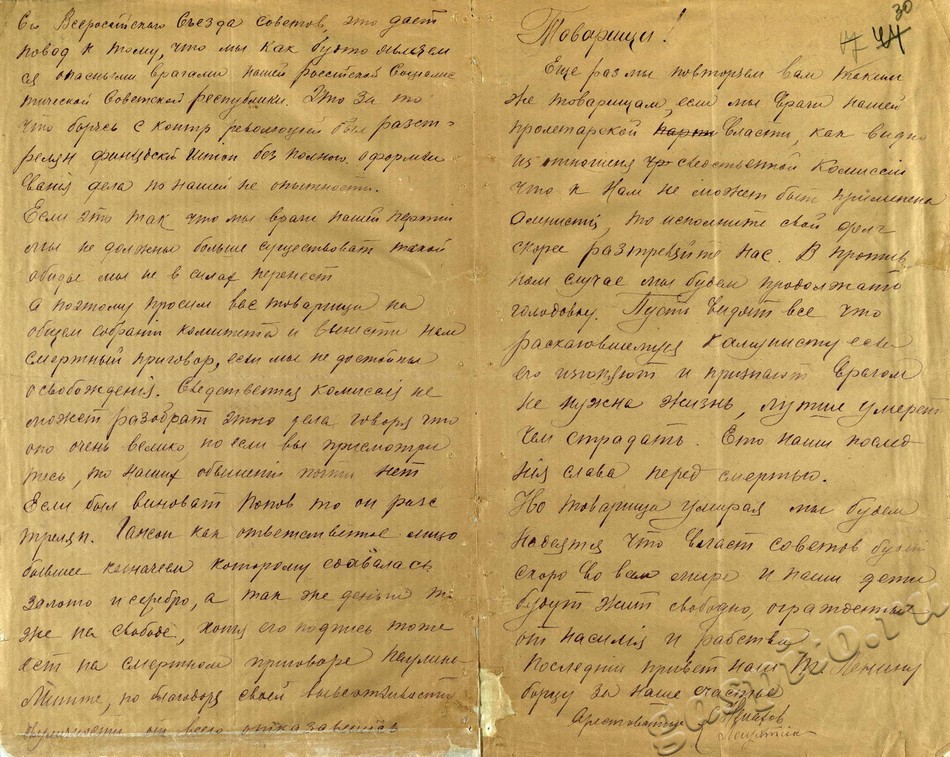 Го Всероссійскаго Съезда советов, это дает
повод к тому, что мы как будто являем
ся опасными врагами нашей Российской Социалис
тической Советской республики. Это за то
что борясь с контр революцией был разст-
релян финцкой без полного оформи
вания дела по нашей не опытности.
Если это так что мы враги нашей партии
мы не должны больше существоват такой
обиды мы не в силах перенест
а поэтому просим вас товарищи на
общем собрании комитета и вынести нам
смертный приговор, если мы не достойны
освобождения. Следствення комиссия не
может разобрат этго дела говоря что
оно очень велико, но если вы присмотри
тесь, то наших обвинений почти нет
Если был виноват Попов то он разс
трелян. Гансон как ответственное лицо
бывшее казначеем которому сдавалась
золото и серебро, а так же деньги то
же на свободе, хотя его подпись тоже
ест на смертном приговоре
но благоворя своей
от всего отказавшись
30
17 44
Товарищи!
Еще раз мы повторяем вам таким
же товарищам, если мы враги нашей
пролетарской власти, как видно
из отношения следственной комиссии
что к нам не может быт применена
амнистия, то исполните свой долг
скорее разтреляйте нас. В против
ном случае мы будем продолжать
голодовку. Пусть видят все что
раскаювшемуся камунисту если
его изгоняют и признают врагом
не нужна жизнь, лутше умереть
чем страдать. Ето наши послед
ния слава перед смертью.
Но товарищи умирая мы будем
надеятся что власт советов будет
скоро во всем мире и наши дети
будут жит свободно,
от насилия и рабства.
Последний привет наш Т. Ленину
борцу за наше счастье
Арестованные
gasurio.ru